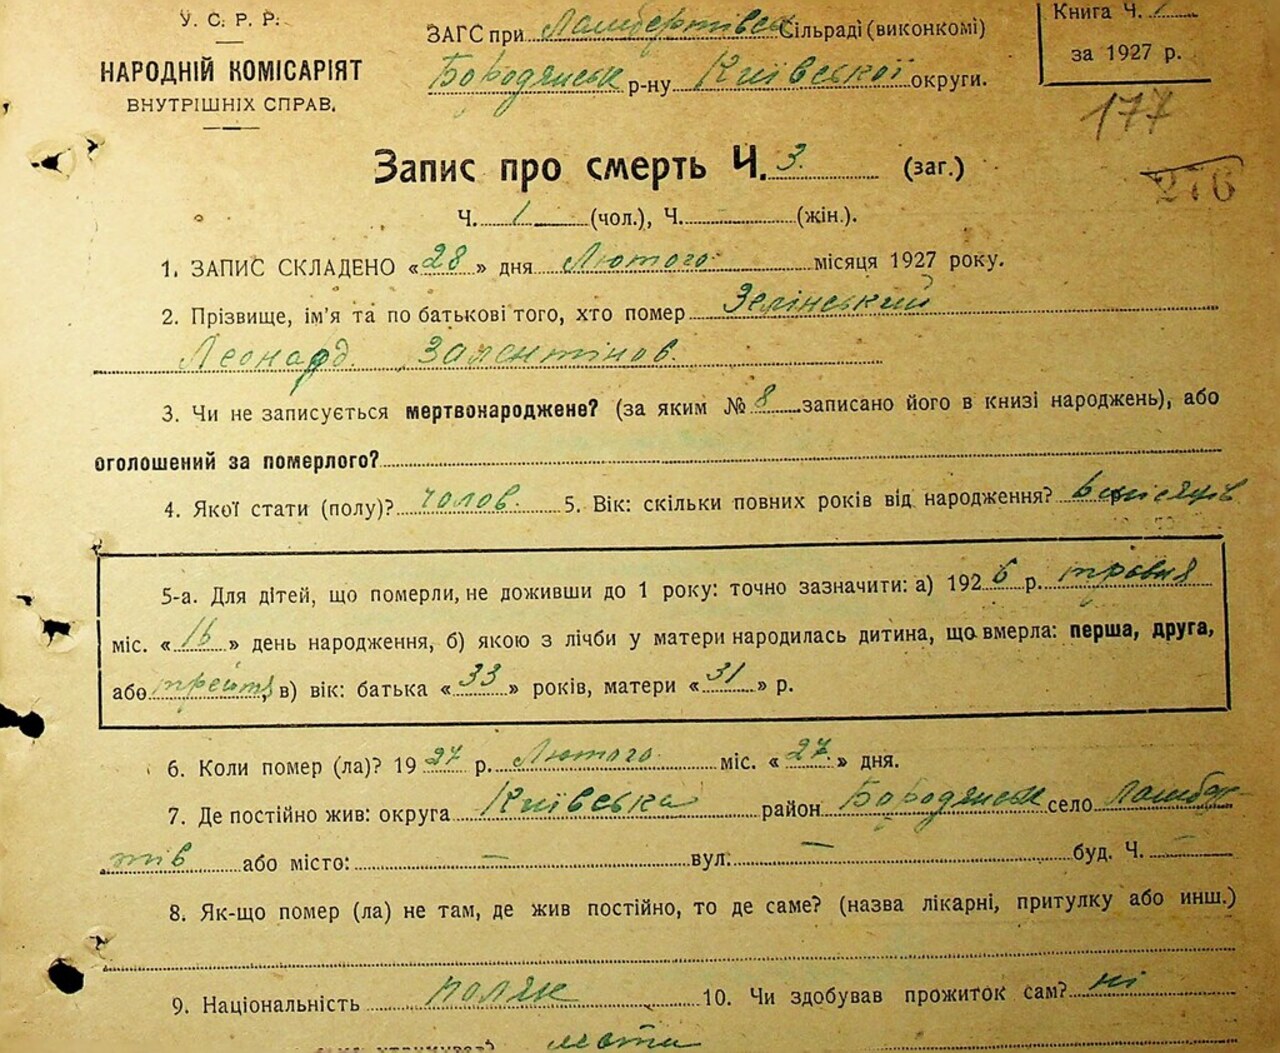 У. С. Р. Р.
НАРОДНІЙ КОМІСАРІЯТ
ВНУТРІШНІХ СПРАВ.
ЗАГС при Ламбертівськ Сільраді (виконкомі)
Бородянськ р-ну Київської округи.
Книга Ч. 1
за 1927 р.
177
276
Запис про смерть Ч. 3. (заг.)
Ч. 1 (чол.), Ч. - (жін.).
1. ЗАПИС СКЛАДЕНО «28» дня Лютого місяця 1927 року.
2. Прізвище, ім'я та по батькові того, хто помер Зелінський
Леонард. Валентінов.
3. Чи не записується мертвонароджене? (за яким № 8 записано його в книзі народжень), або
оголошений за померлого?
4. Якої стати (полу)? чолов. 5. Вік: скільки повних років від народження? 6 місяців
5-а. Для дітей, що померли, не доживши до 1 року: точно зазначити: а) 1926 р. травня
міс. «16» день народження, б) якою з лічби у матери народилась дитина, що вмерла: перша, друга,
або третя, в) вік: батька «33» років, матери «31» р.
6. Коли помер (ла)? 1927 р. Лютого міс. «27.» дня.
7. Де постійно жив: округа Київська район Бородянськ село Ламбер
тів або місто: — вул. — буд. Ч. —
8. Як-що помер (ла) не там, де жив постійно, то де саме? (назва лікарні, притулку або инш.)
9. Національність поляк 10. Чи здобував прожиток сам? ні
мати